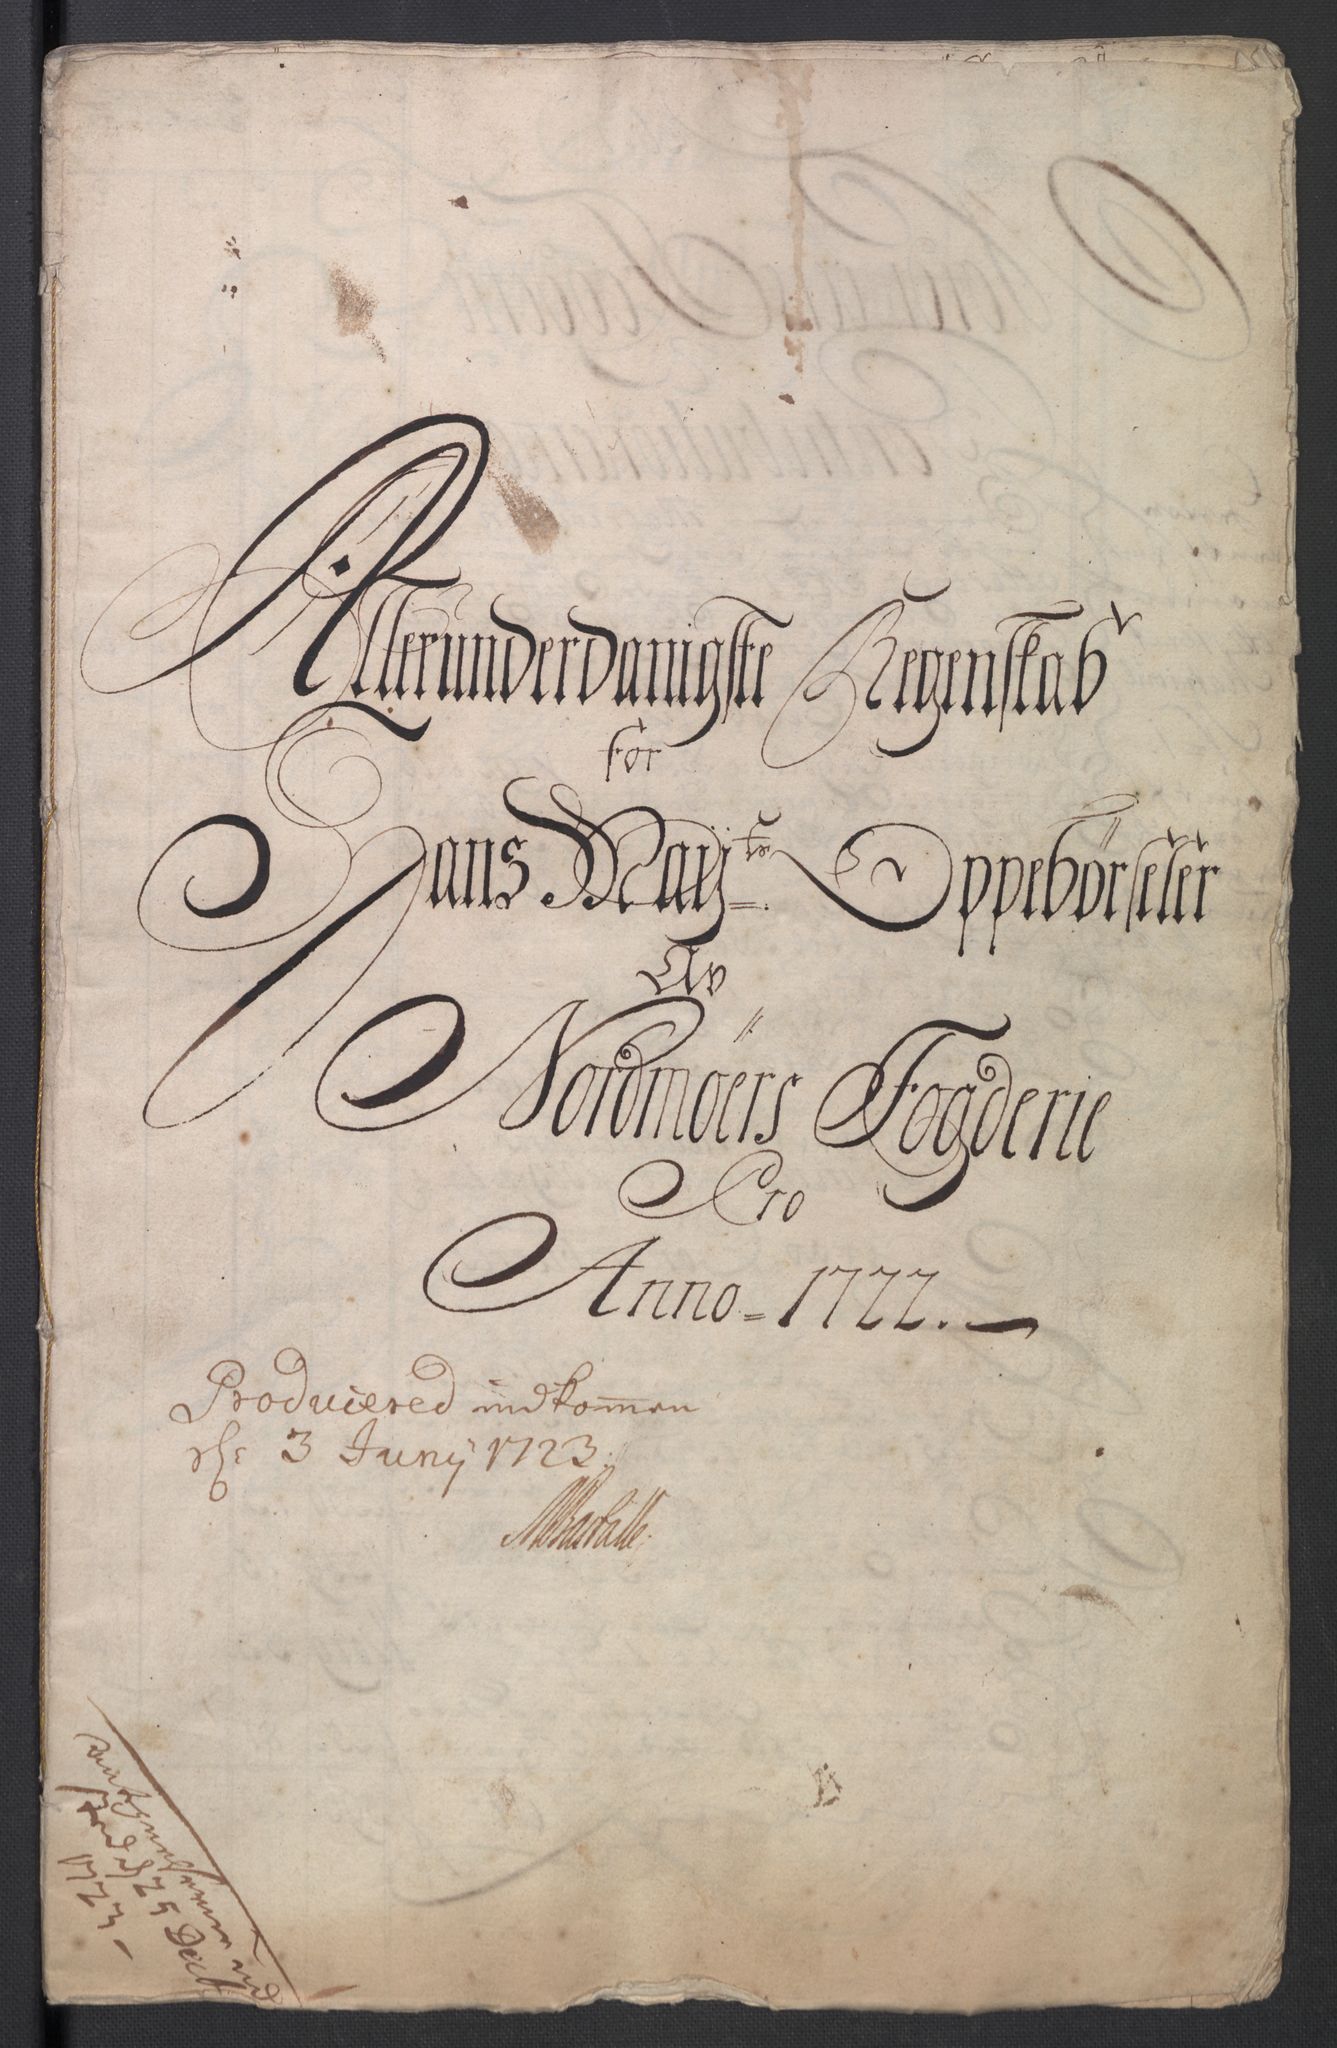 Allerunderdanigste Regenskab
for
Hans May:te Oppebörseler
Av
Nordmöers Fogderie
Pro
Anno = 1722.
Producered indkommen
3 Junij 1723.
25 Decb
1723